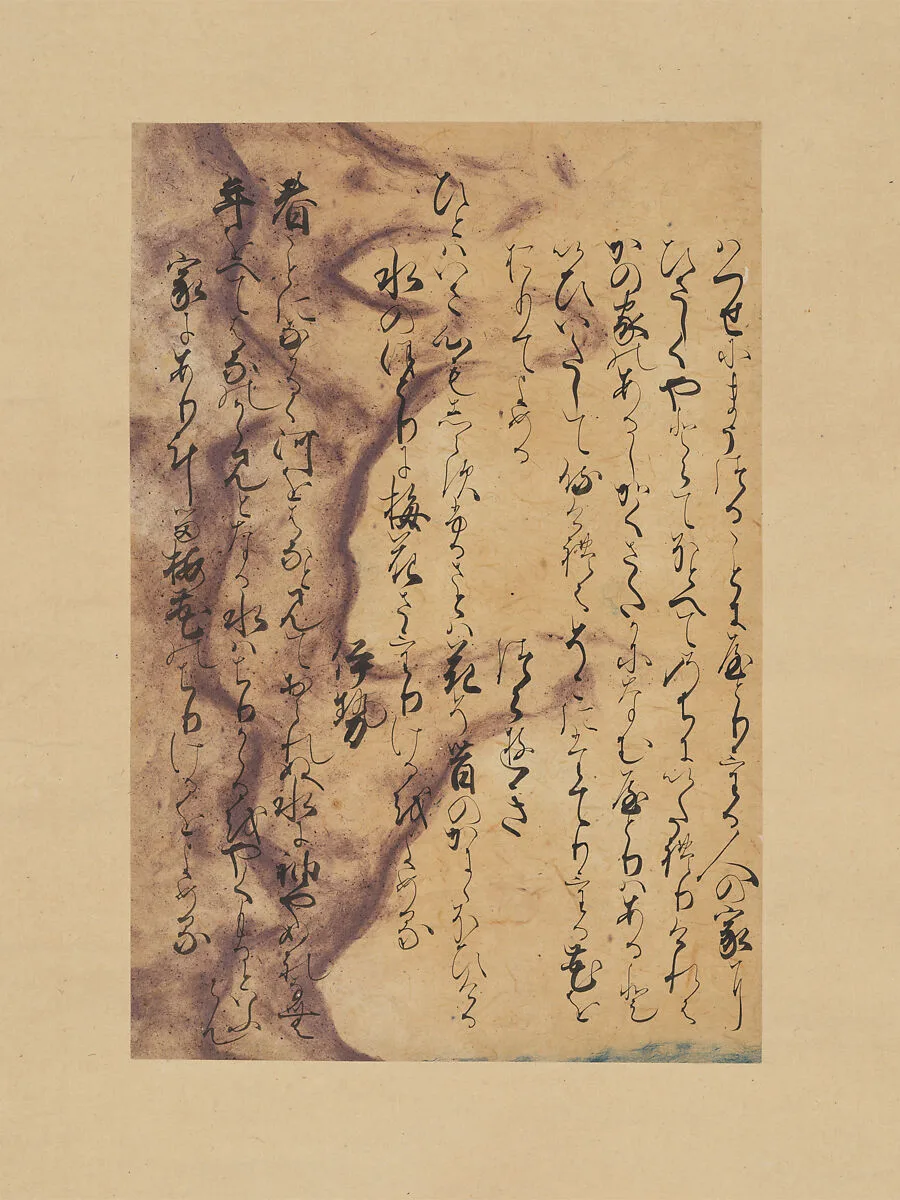 はつせにまうつることにやとりける人の家に
ひさしくやとらてほとへてのちにいたれりけれは
かの家のあるしかくさたかになむやとりはあると
いひいたして侍けれはそこにたてりける花を
おりてよめる
つらゆき
ひとはいさ心もしらすふるさとは花そ昔のかにゝほひける
水のほとりに梅花さけりけるをよめる
伊勢
春ことになかるゝ河をはなと見ておられぬ水に袖やぬれなむ
年をへて花のかゝみとなる水はちりかゝるをやくもるといふらん
家にありける梅花のちりけるをよめる